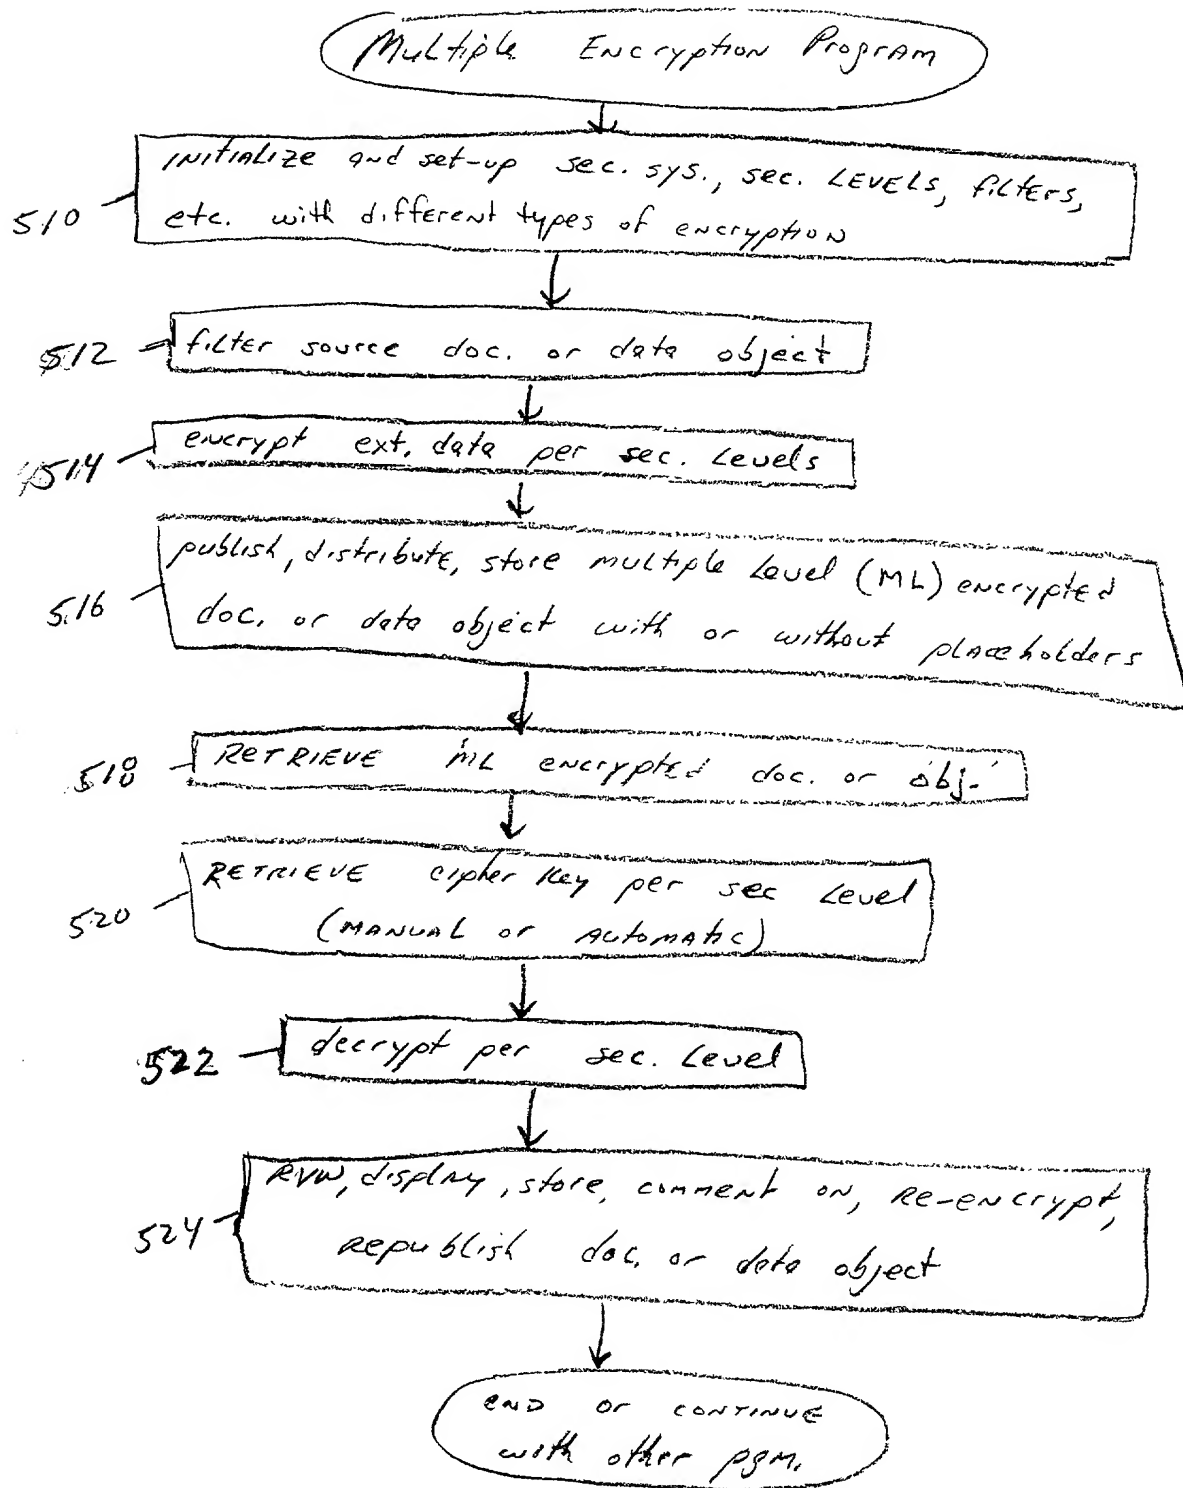 Multiple Encryption Program
510
INITIALIZE and set-up sec. sys., sec. LEVELS, filters,
etc. with different types of encryption
512
filter source doc. or data object
514
encrypt ext. data per sec. Levels
516
publish, distribute, store multiple Level (ML) encrypted
doc. or data object with or without placeholders
518
RETRIEVE ML encrypted doc. or obj.
520
RETRIEVE cipher Key per sec Level
(MANUAL or AUTOMATIC)
522
decrypt per sec. Level
524
RVW, display, store, comment on, RE-encrypt,
Republish doc. or data object
END OR CONTINUE
with other pgm.